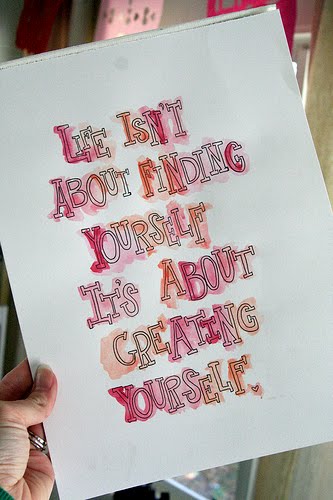 Life Isn't
About Finding
Yourself
It's About
Creating
Yourself.